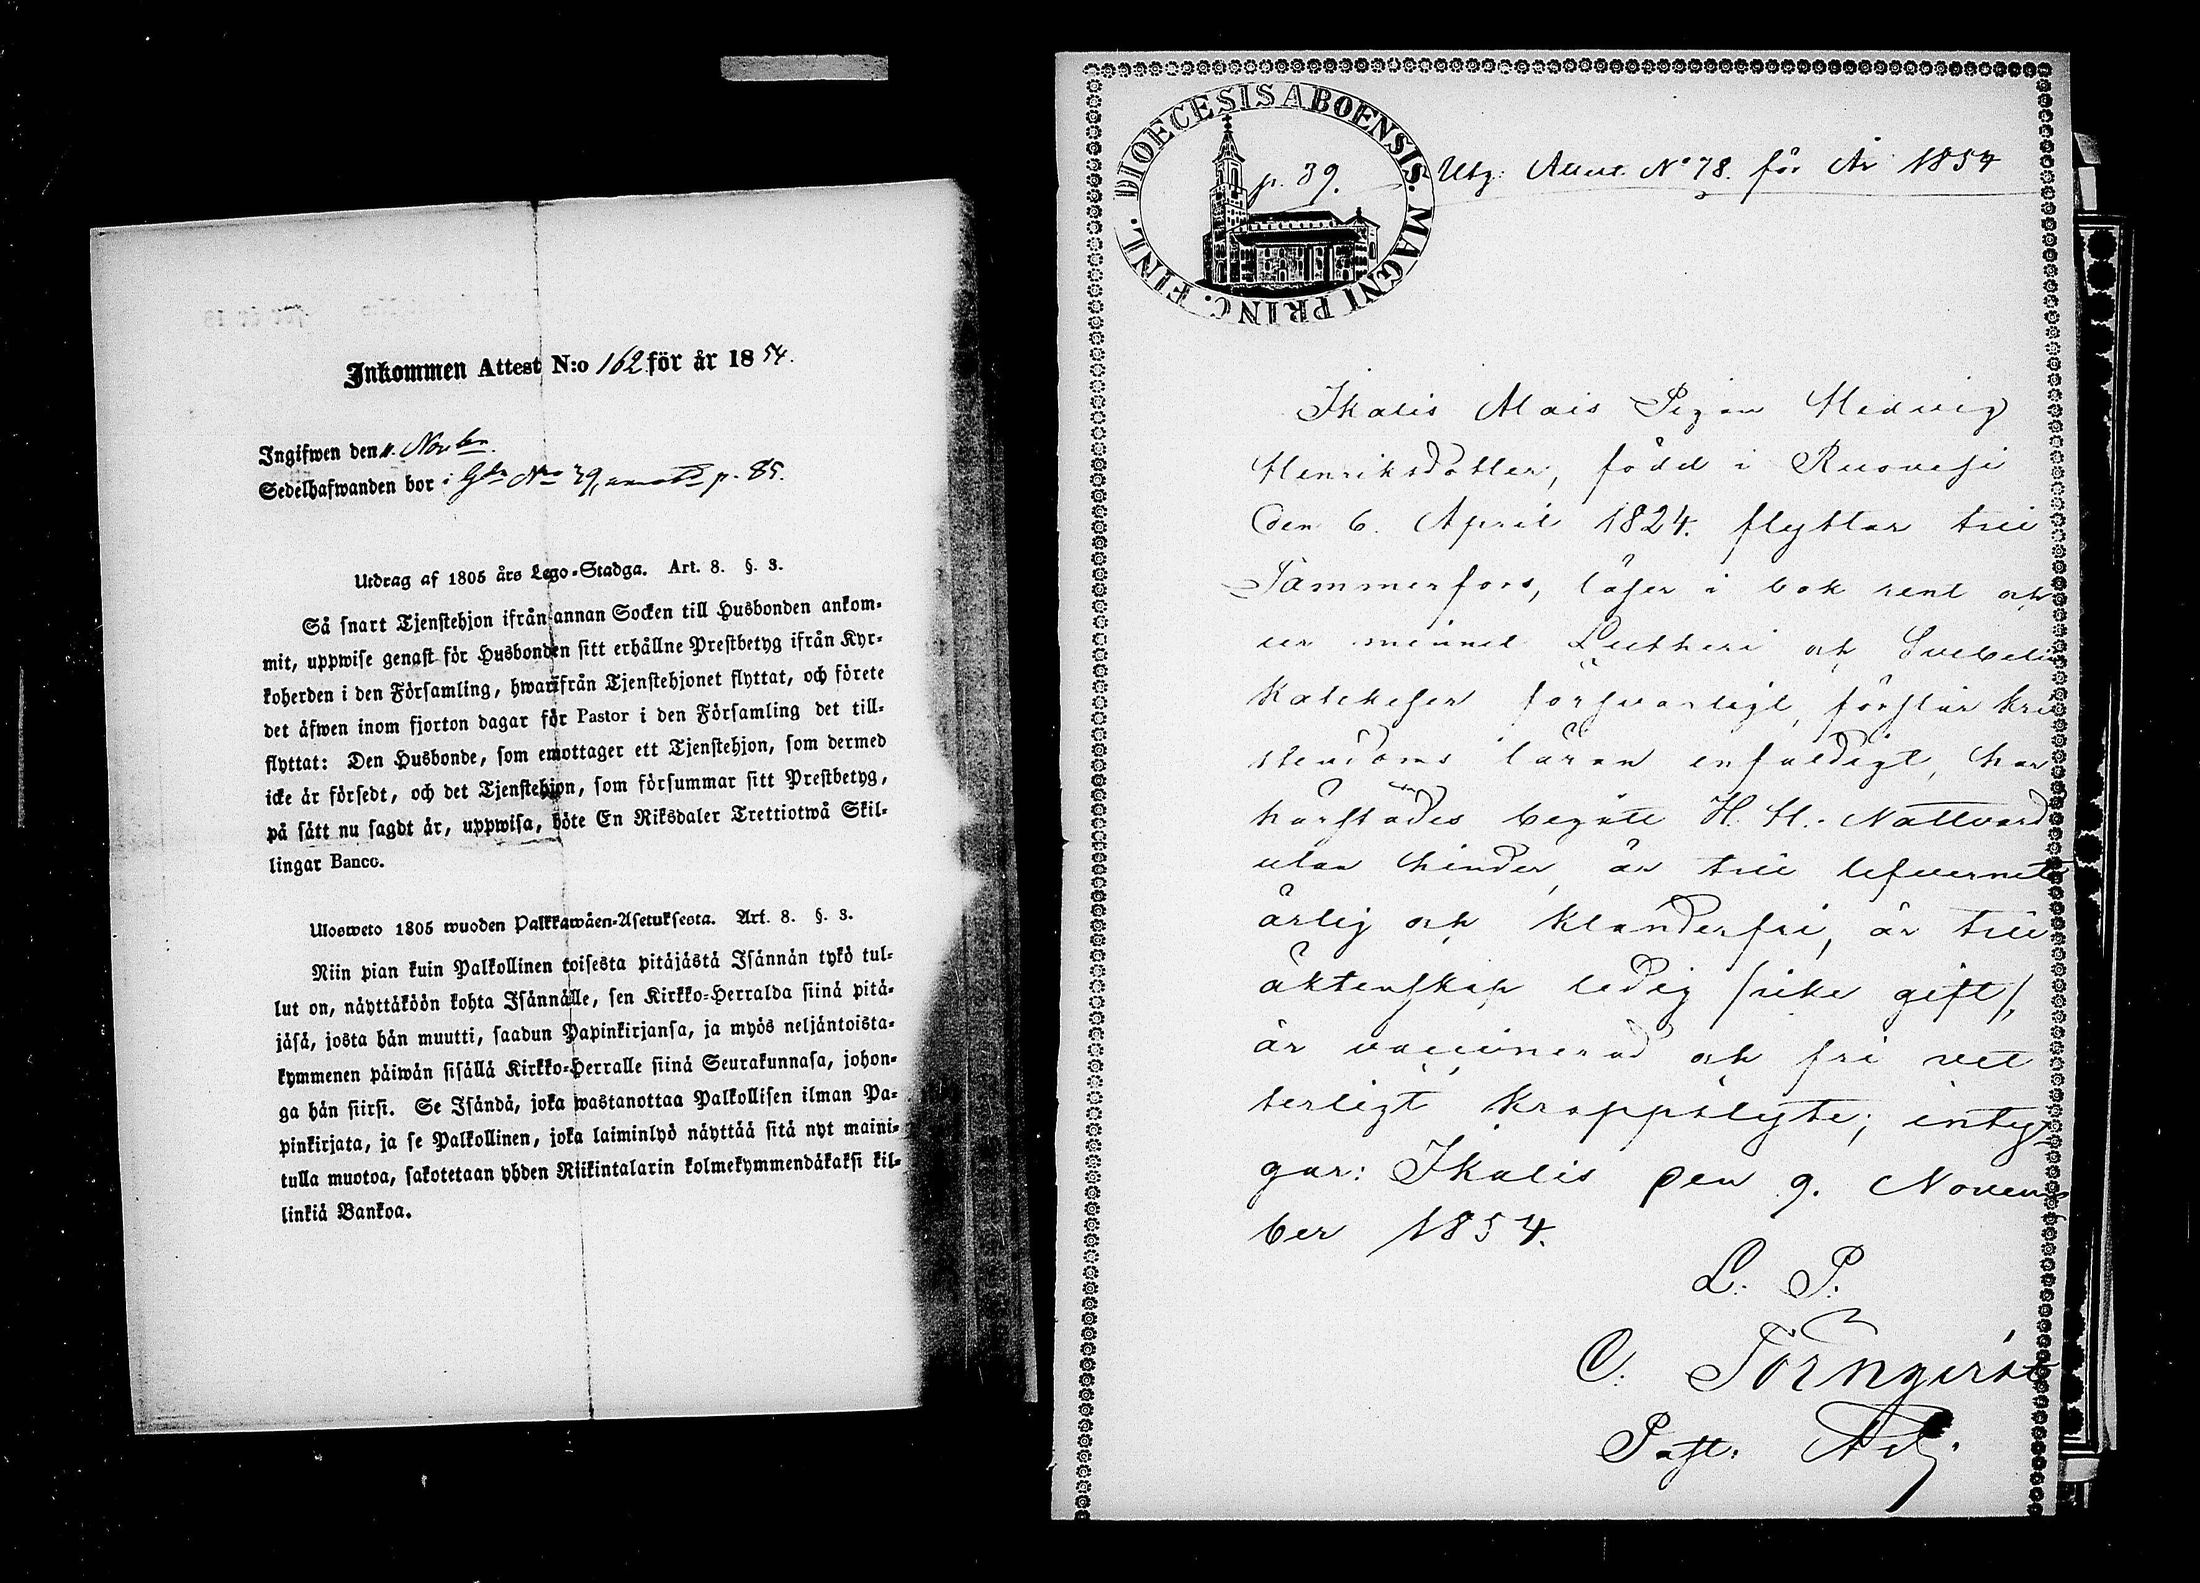 Inkommen Attest N:o 162 för år 1854.
Ingifwen den 11. Novbr.
Sedelhafwanden bor i Gdn Nro 39, p. 85.
Utdrag af 1805 års Lego-Stadga. Art. 8. §. 3.
Så snart Tjenstehjon ifrån annan Socken till Husbonden ankom-
mit, uppwise genast för Husbonden sitt erhållne Prestbetyg ifrån Kyr-
koherden i den Församling, hwarifrån Tjenstehjonet flyttat, och förete
det äfwen inom fjorton dagar för Pastor i den Församling det till-
flyttat: Den Husbonde, som emottager ett Tjenstehjon, som dermed
icke är försedt, och det Tjenstehjon, som försummar sitt Prestbetyg,
på sätt nu sagdt är, uppwisa, böte En Riksdaler Trettiotwå Skil-
lingar Banco.
Ulosweto 1805 wuoden Palkkawäen-Asetuksesta. Art. 8. §. 3.
Niin pian kuin Palkollinen toisesta pitäjästä Isännän tykö tul-
lut on, näyttäköön kohta Isännälle, sen Kirkko-Herralda siinä pitä-
jäsä, josta hän muutti, saadun Papinkirjansa, ja myös neljäntoista-
kymmenen päiwän sisällä Kirkko-Herralle siinä Seurakunnasa, johon-
ga hän siirsi. Se Isändä, joka wastanottaa Palkollisen ilman Pa-
pinkirjata, ja se Palkollinen, joka laiminlyö näyttää sitä nyt maini-
tulla muotoa, sakotetaan yhden Riikintalarin kolmekymmendäkaksi kil-
linkiä Bankoa.
DIOECESIS ABOENSIS. MAGNI PRINC. FINL.
p. 39. Utg: Attest No 78. för År 1854
Ikalis Alais Pigan Hedvig
Henriksdotter, född i Ruovesi
den 6. April 1824. flyttar till
Tammerfors, läser i bok rent och
ur minnet Lutheri och Svebelii
Katekeser försvarligt, förstår kri
stendoms läran enfaldigt, har
härstädes begått H. H. Nattvard
utan hinder, är till lefvernet
ärlig och klanderfri, är till
äktenskap ledig /icke gift/,
är vaccinerad och fri vet
terligt kroppslyte; inty-
gar: Ikalis den 9. Novem-
ber 1854.
L. P.
C. Törnqvist
Past: Adj.